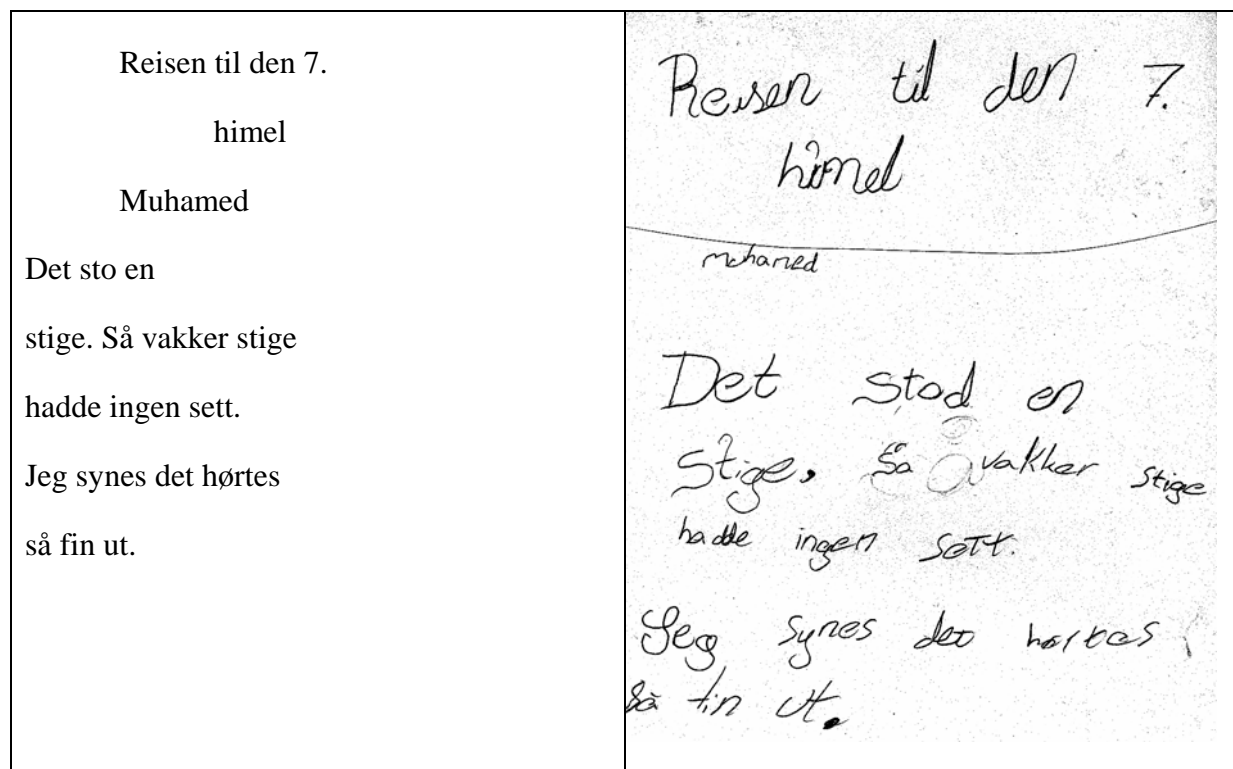 Reisen til den 7.
himel
Muhamed
Det sto en
stige. Så vakker stige
hadde ingen sett.
Jeg synes det hørtes
så fin ut.
Reisen til den 7.
himel
muhamed
Det stod en
stige, så vakker stige
hadde ingen sett.
Jeg synes det hørtes
så fin ut.